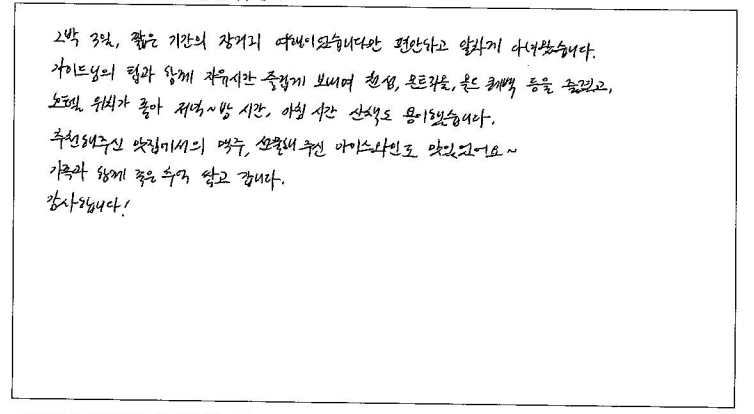 2박 3일, 짧은 기간의 장거리 여행이었습니다만 편안하고 알차게 다녀왔습니다.
가이드님의 팁과 함께 자유시간 즐겁게 보내며 천섬, 몬트리올, 올드 퀘백 등을 즐겼고,
호텔 위치가 좋아 저녁~밤 시간, 아침 시간 산책도 용이했습니다.
추천해주신 맛집에서의 맥주, 선물해 주신 아이스와인도 맛있었어요~
가족과 함께 좋은 추억 쌓고 갑니다.
감사합니다!